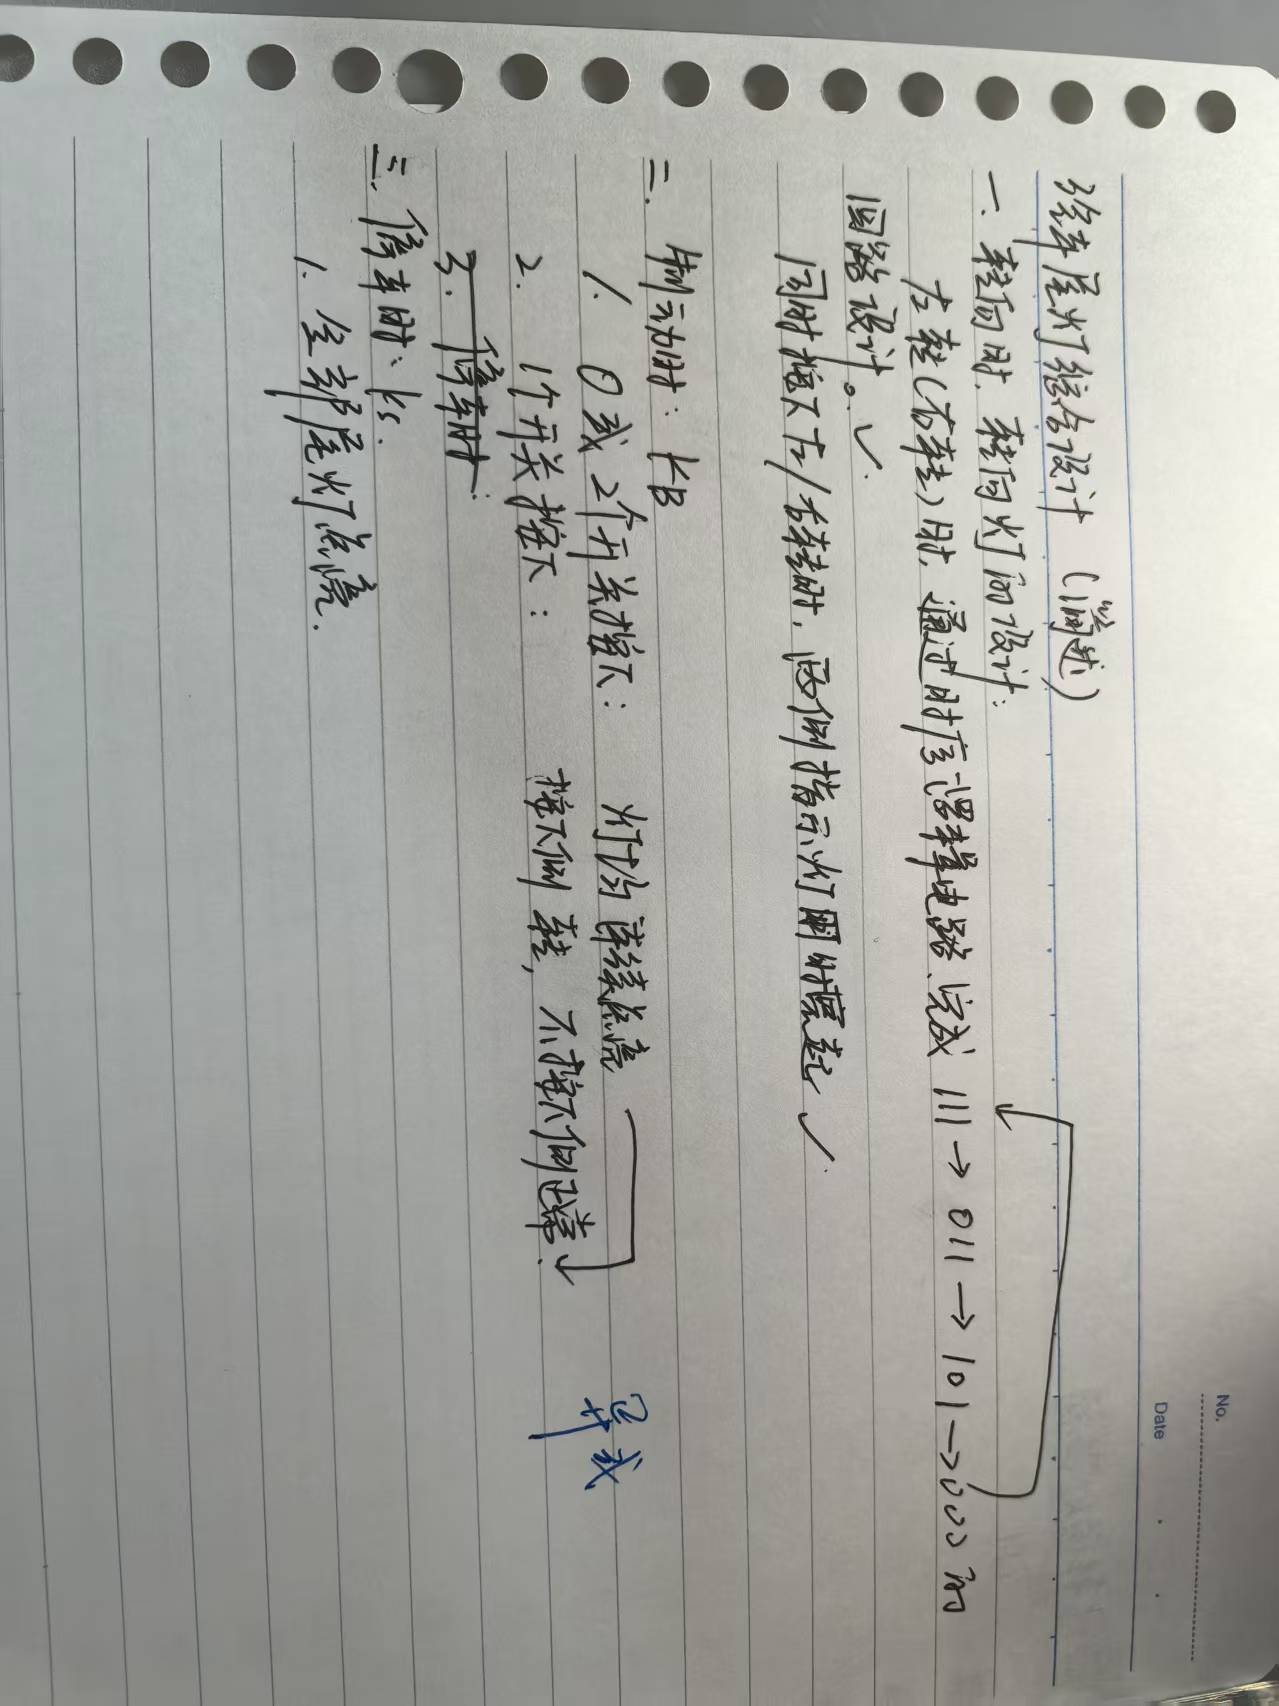 No.
Date
汽车尾灯综合设计 (简述)
一. 转向时. 转向灯的设计:
左转(右转)时, 通过时序逻辑电路、完成 111→011→101→000的
回路设计。✓
同时按下左/右转时, 两侧指示灯同时亮起 ✓
二. 制动时: KB
1. 0或2个开关按下: 灯均连续点亮
2. 1个开关按下: 按下侧转, 不按下侧正常. 异或
3. 停车时:
三. 停车时: Ks.
1. 全部尾灯点亮.